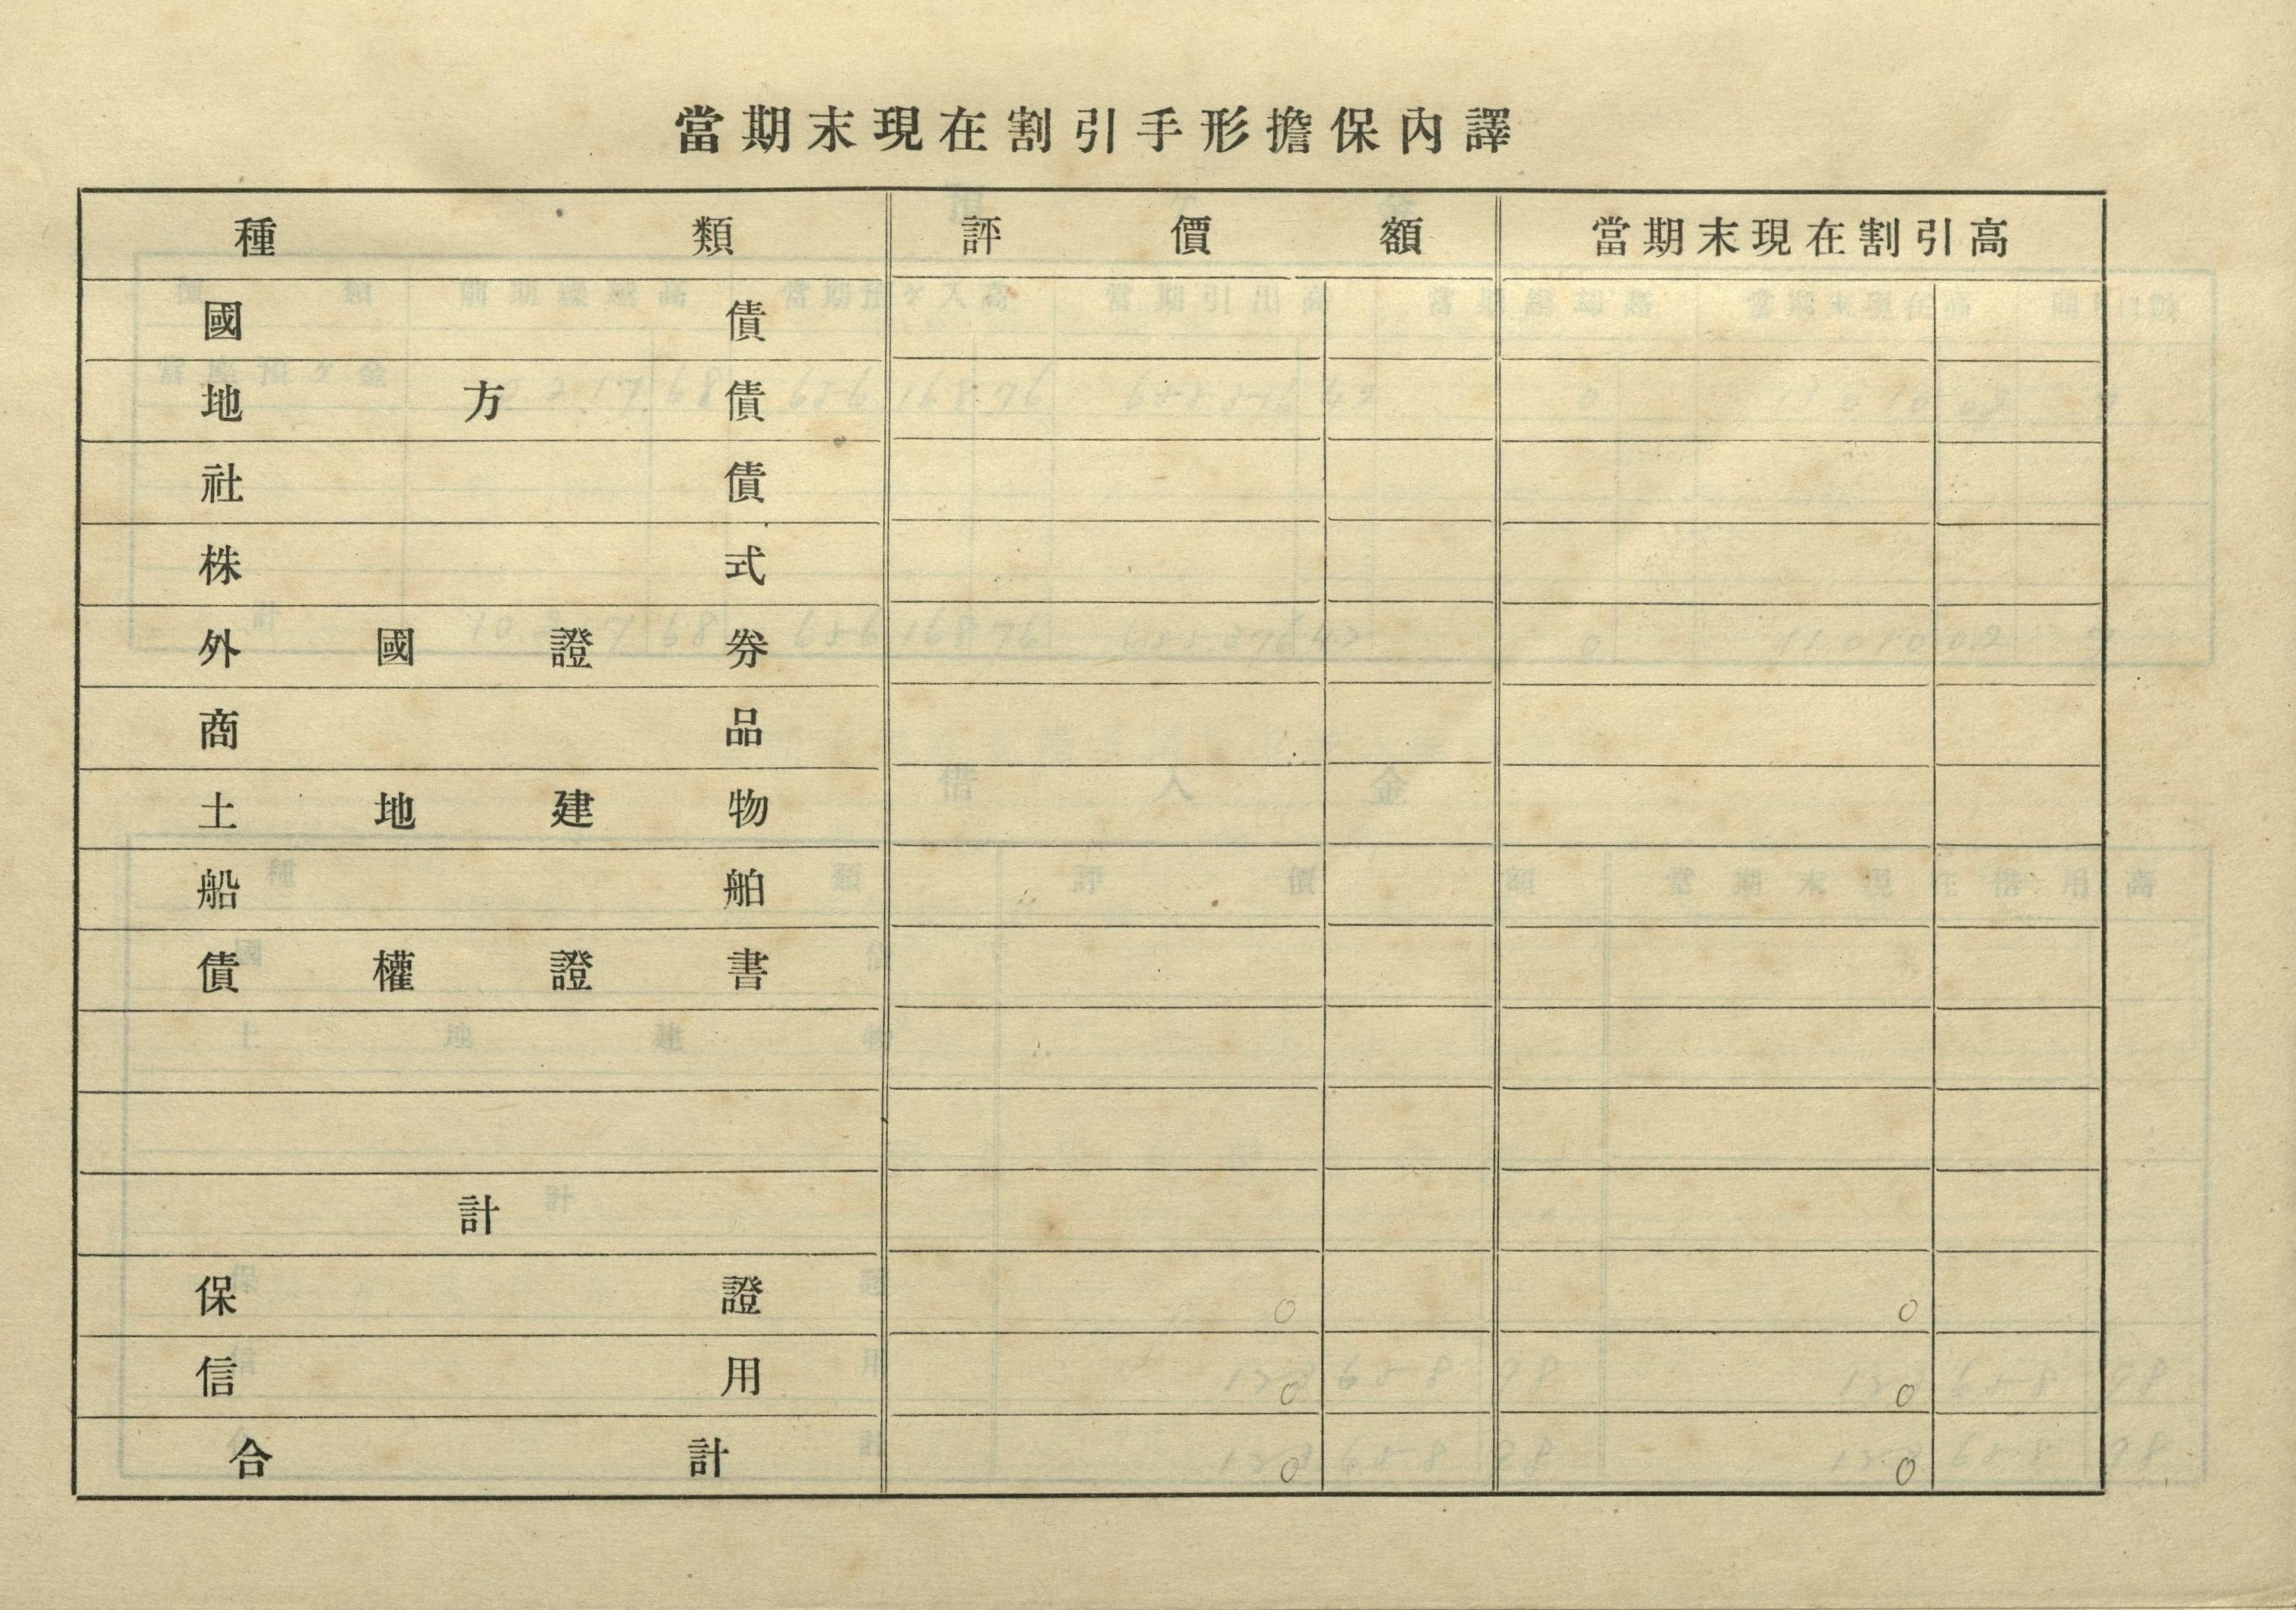 當期末現在割引手形擔保內譯
種類 評價額 當期末現在割引高
國債
地方債
社債
株式
外國證券
商品
土地建物
船舶
債權證書
計
保證 0 0
信用 0 0
合計 0 0